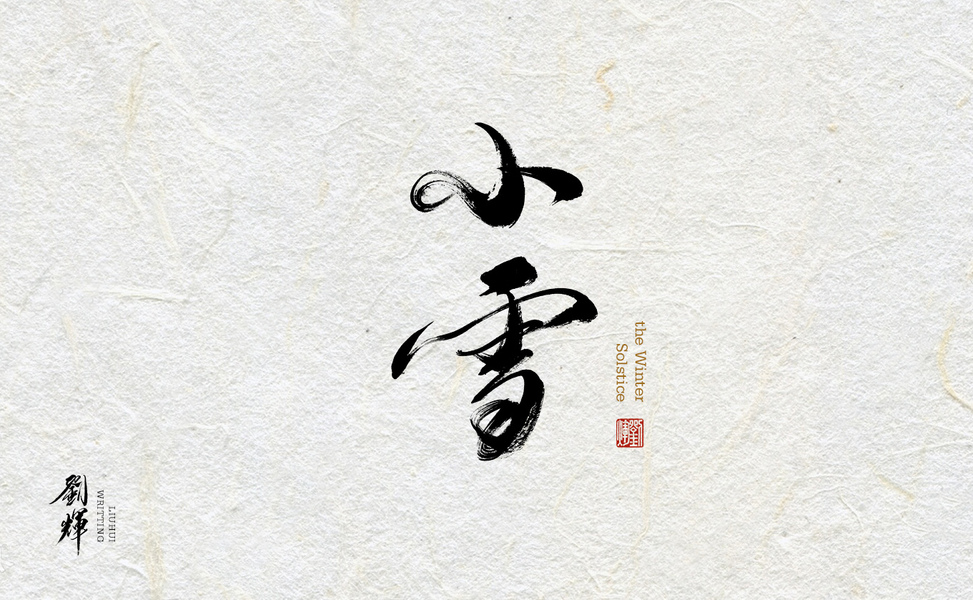 小雪
the Winter
Solstice
劉輝
LIUHUI
WRITTING